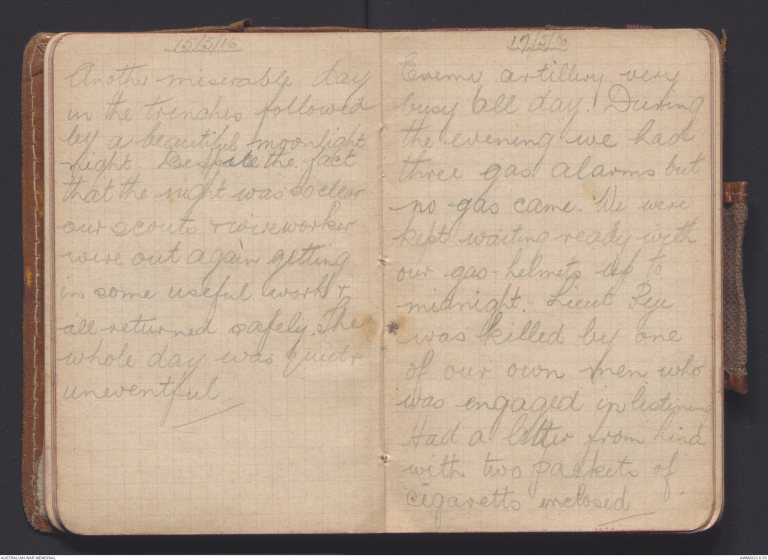 15/5/16
Another miserable day
in the trenches followed
by a beautiful moonlight
night. Despite the fact
that the night was so clear
our scouts & wireworker
were out again getting
in some useful work &
all returned safely. The
whole day was quiet &
uneventful
Enemy artillery very
busy all day! During
the evening we had
three gas alarms but
no gas came. We were
kept waiting ready with
our gas-helmets up to
midnight. Lieut
was killed by one
of our own men who
was engaged in listening
Had a letter from
with two packets of
cigaretts enclosed
AUSTRALIAN WAR MEMORIAL